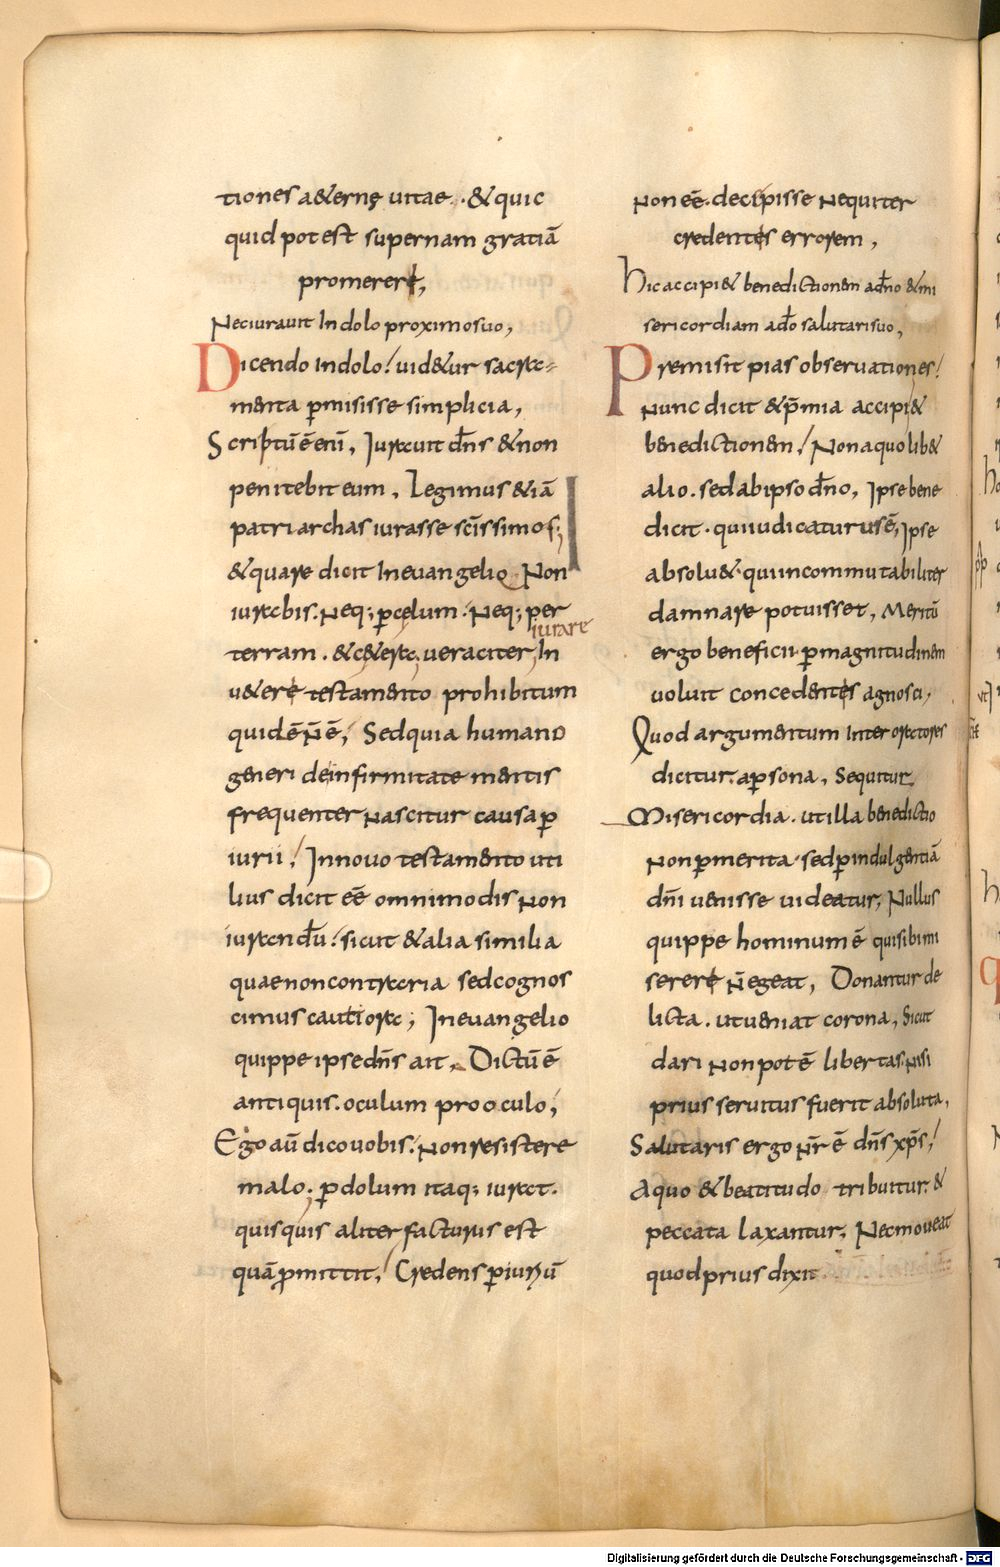 tiones a&ernę uitae. & quic
quid potest supernam gratiā
promerere,
Nec iurauit In dolo proximo suo,
Dicendo In dolo! uid&ur sacra-
menta ꝑmisisse simplicia,
Scriptū ē eni͞, Iurauit dn̄s & non
penitebit eum, Legimus &iā
patriarchas iurasse sc̄issimos;
& quare dicit In euangelio Non
iurabis. Neq; ꝑ cęlum. Neq; per
iurare
terram. & c&era; ueraciter, In
u&ere testamento prohibitum
quidē n̄ ē, Sed quia humano
generi de infirmitate mentis
frequenter nascitur causa ꝑ
iurii, In nouo testamento uti
lius dicit eē omnimodis non
iurandū! sicut & alia similia
quae non contraria sed cognos
cimus cautiora; In euangelio
quippe ipse dn̄s ait, Dictū ē
antiquis. oculum pro oculo,
Ego aū dico uobis. Non resistere
malo; ꝑ dolum itaq; iurat.
quisquis aliter facturus est
quā ꝓmittit, Credens ꝑiuriū
Non eē. decipisse nequiter
credentes errorem,
hic accipi& benedictionem a dn̄o & mi
sericordiam a dō salutari suo,
Premisit pias obseruationes!
Nunc dicit & p̄mia accipi&
benedictionem, Non a quolib&
alio. sed ab ipso dn̄o, Ipse bene
dicit. qui iudicaturus ē, Ipse
absolu&. qui incommutabiliter
damnare potuisset, Meritū
ergo beneficii ꝑ magnitudinem
uoluit concedentis agnosci,
Quod argumentum Inter oratores
dicitur. a ꝑsona, Sequitur
Misericordia. ut illa benedictio
Non ꝑ merita. sed ꝑ indulgentiā
dn̄i uenisse uideatur; Nullus
quippe hominum ē qui sibi mi
serere n̄ egeat, Donantur de
licta. ut ueniat corona, Sicut
dari non potē libertas. nisi
prius seruitus fuerit absoluta,
Salutaris ergo nr̄ ē dn̄s xp̄s,
A quo & beatitudo tribuitur. &
peccata laxantur; Nec moueat
quod prius dixit